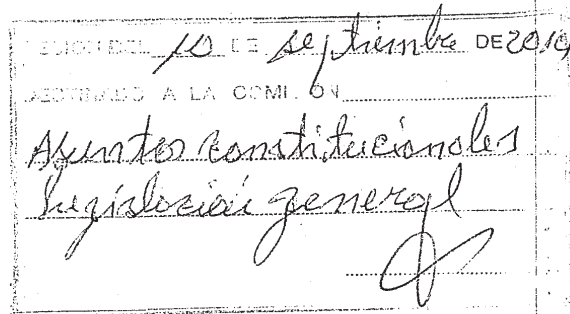 SESION DEL 10 DE septiembre DE 2010
DESTINADO A LA COMISION
Asuntos constitucionales
Legislación general